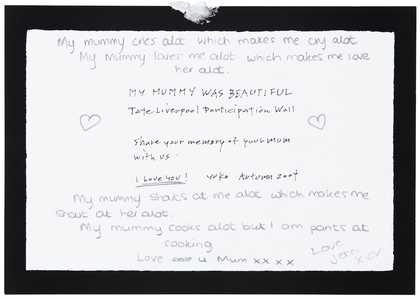 My mummy cries alot which makes me cry alot
My mummy loves me alot which makes me love
her alot.
MY MUMMY WAS BEAUTIFUL
Tate Liverpool Participation Wall
Share your memory of your mum
with us.
I love you! yoko Autumn 2004
My mummy shouts at me alot which makes me
shout at her alot.
My mummy cooks alot but I am pants at
cooking
Love u Mum x x x x
Love
Jess xox